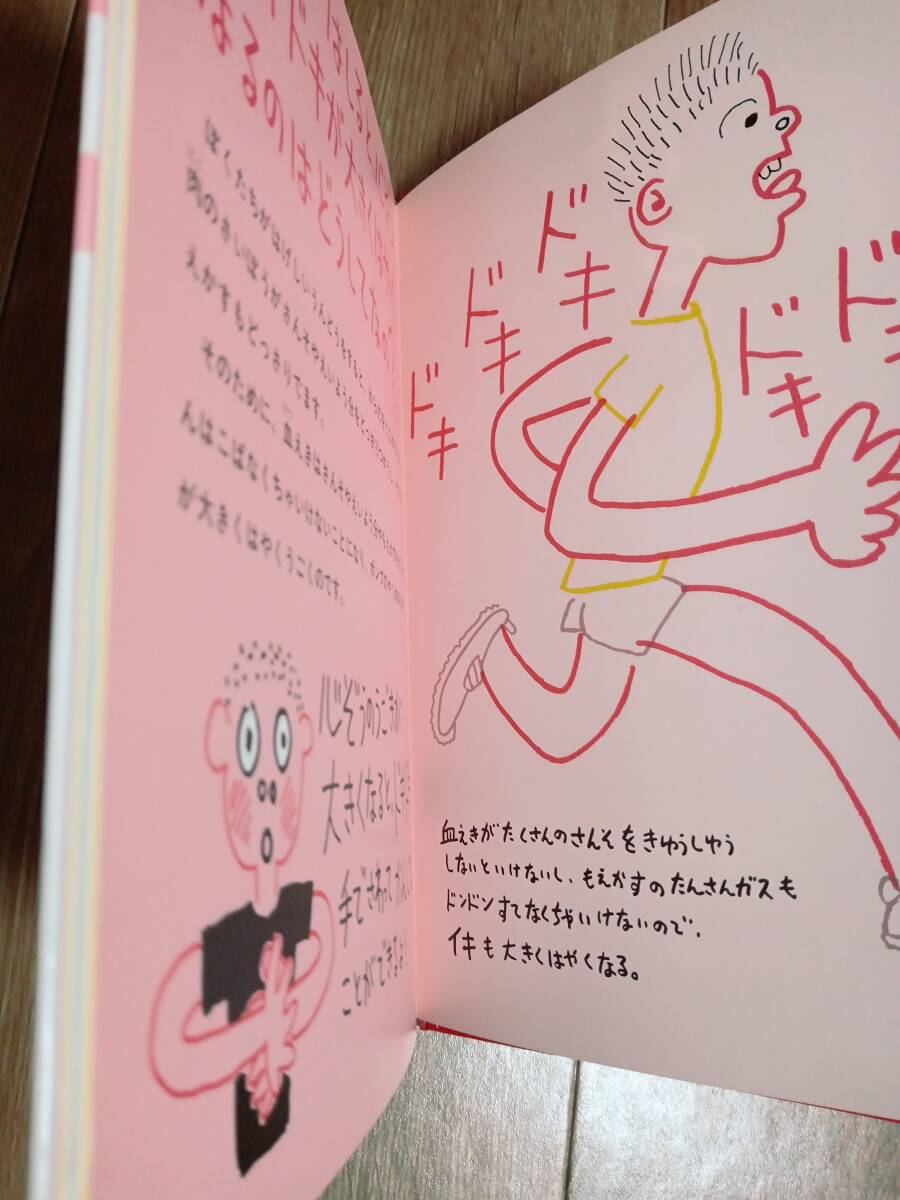 はしると
ドキが大きく
なるのはどうしてなの
ぼくたちがはげしいうんどうをすると、
肉のさいぼうがさんそやえいよう分をどっさり
えかすもどっさりでます。
そのために、血えきはさんそやえいよう分や
んはこばなくちゃいけないことになり、ポンプの
が大きくはやくうごくのです。
心ぞうのうごきが
大きくなると、ドキ
手でさわって
ことができるよ
ドキ
ドキ
ドキ
ドキ
ド
血えきがたくさんのさんそをきゅうしゅう
しないといけないし、もえかすのたんさんガスも
ドンドンすてなくちゃいけないので、
イキも大きくはやくなる。